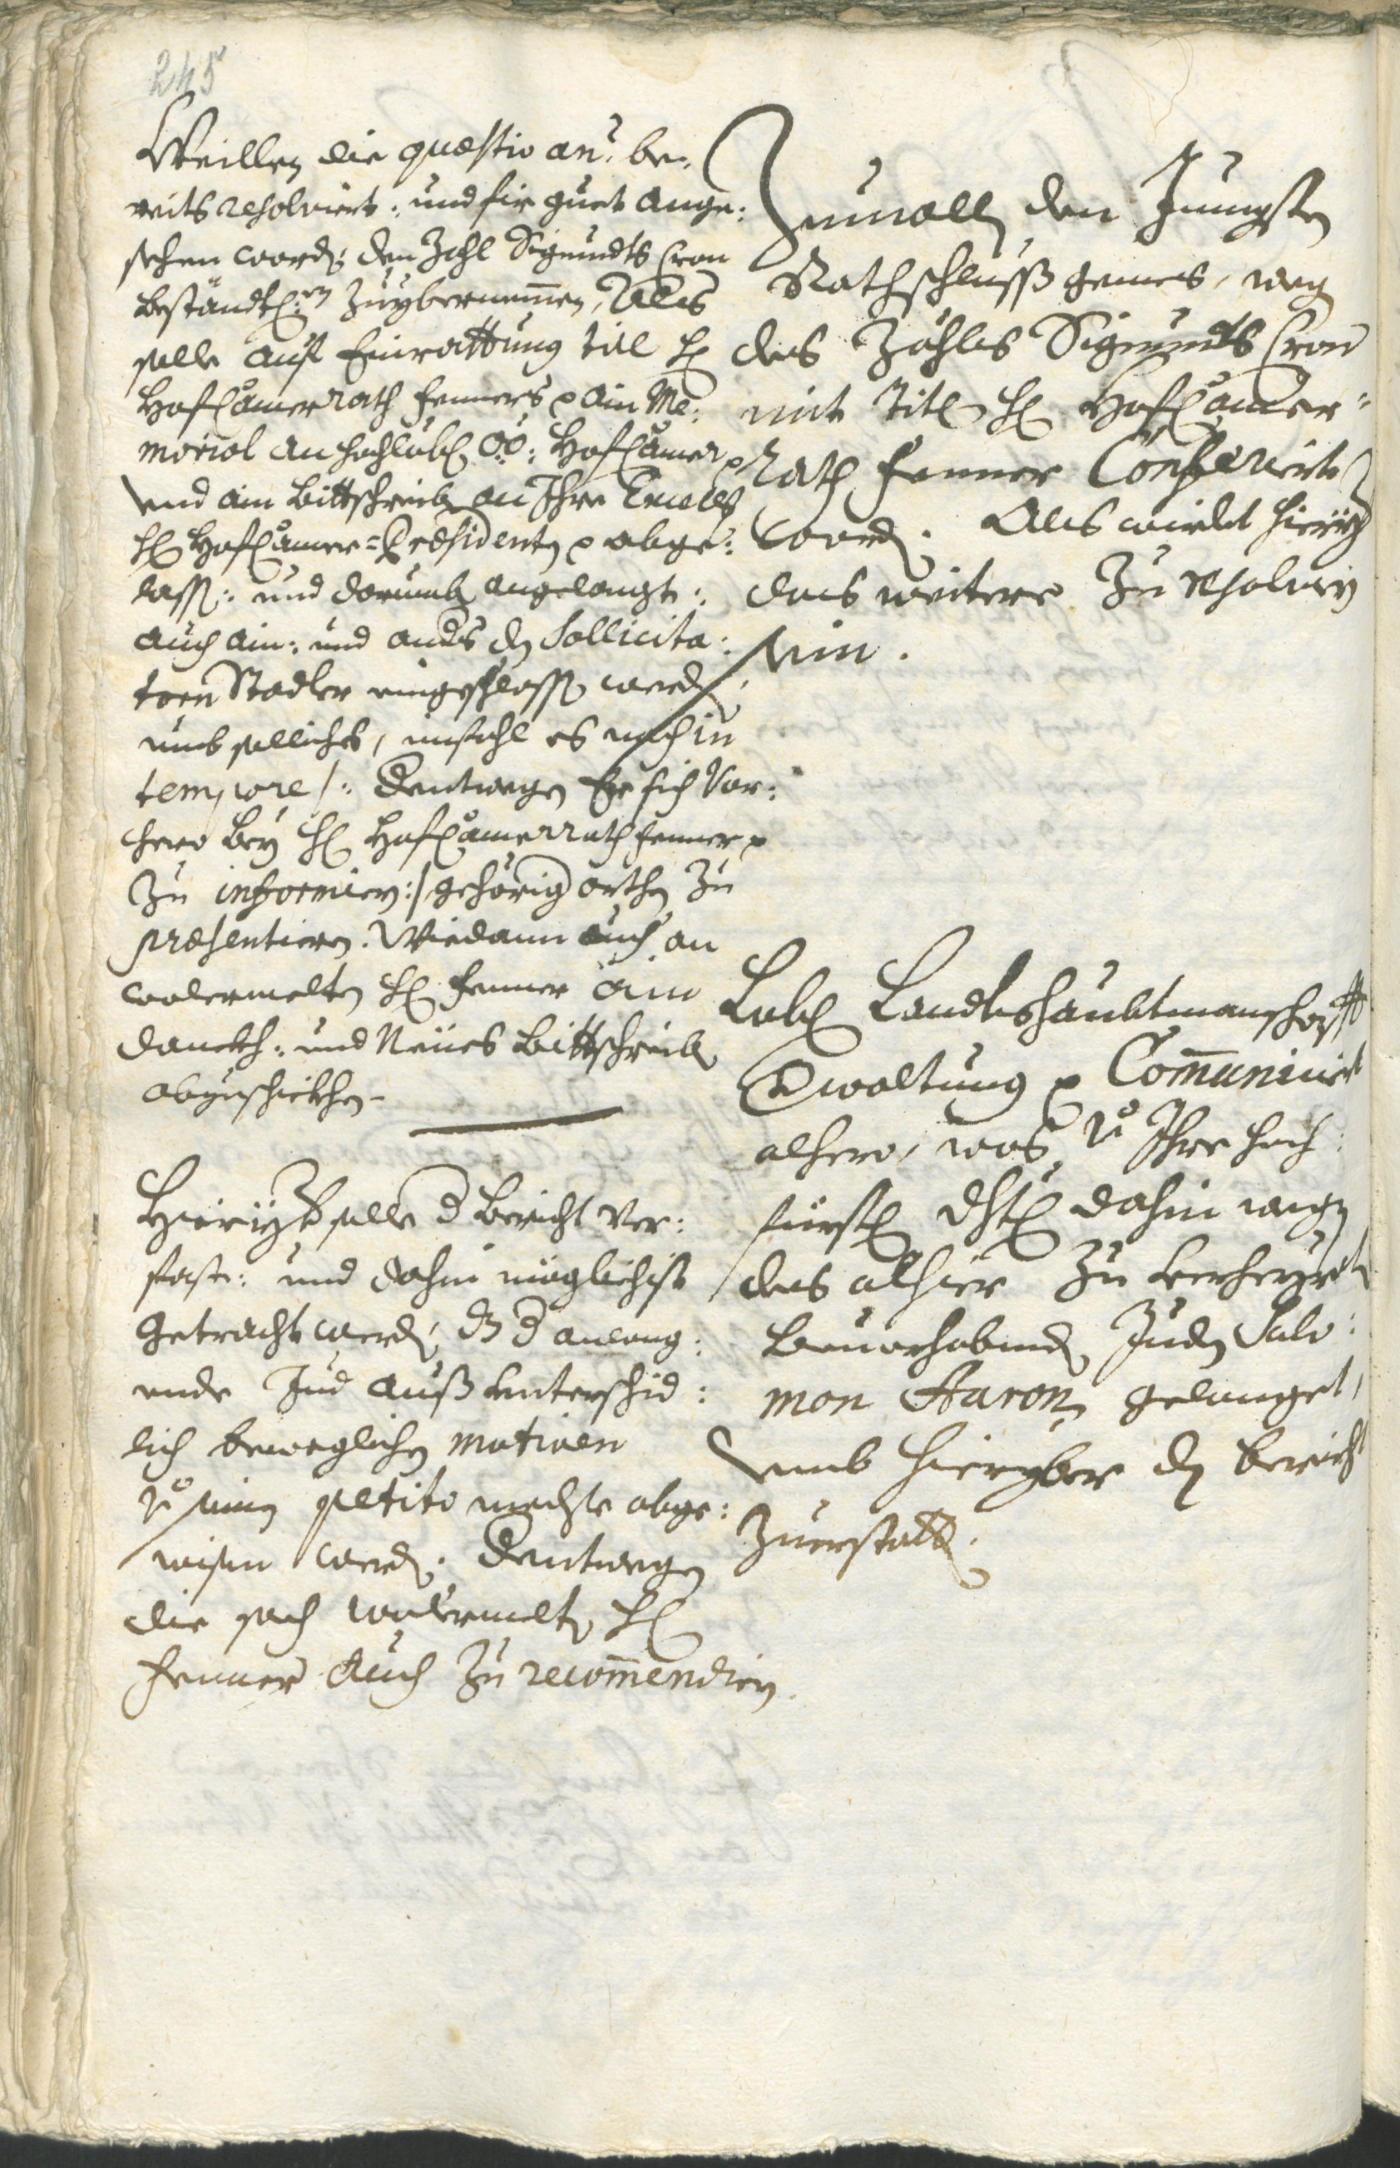 245
Weillen die quæstio an? be-
reits resolviert: und für guet ange:
sehen word: den Zohl Sigmundts Cron
beständtl:en zuybernemmen, Als
solle auf Einrattung titl H:
HofCamerrath Fenners p ain Me:
morial an hochlobl: OÖ: HofCamer p
und ain bittschreib: an Ihre
H: HofCamer=Præsidenten p abge:
lass: und darumb angelangt:
auch ain: und anders den Sollicita:
torn Stadler eingeschloss werd,
umb solliches, unfahl es noch in
tempore /: dentwegen Er sich vor:
hero bey H: HofCamerrath Fenner p
zu informiern :/ gehörig orthen zu
præsentieren. Wiedann auch an
wolermelten H: Fenner ain
danckh: und Neües bittschreib
abzuschickhen.
Hieryber solle der bericht ver:
fast: und dahin möglichist
getracht werd, dz der anlang:
ende Jud auß unterschid:
lich beweglichen motiven
von seinen petito mechte abge:
wisen werd. dentwegen
die sach wolermelten H:
Fenner auch zu recommendiern.
Zumalln den Jungsten
Rathschluss gemes, weg
des Zohls Sigmundts Cron
mit Titl H: HofCamer=
Rath Fenner Conferiert
word. Als wirdet hieryber
das weitere zu resolviern
sein.
Lobl: Landtshaubtmanschafft
Verwaltung p Communiciert
alhero, was von Ihre hoch:
fürstl: Dhtl: dahin wegen
des alhier zu
bevorhabend Juden Salo:
mon Aaron gelanget,
umb hieryber den bericht
zuerstatt.